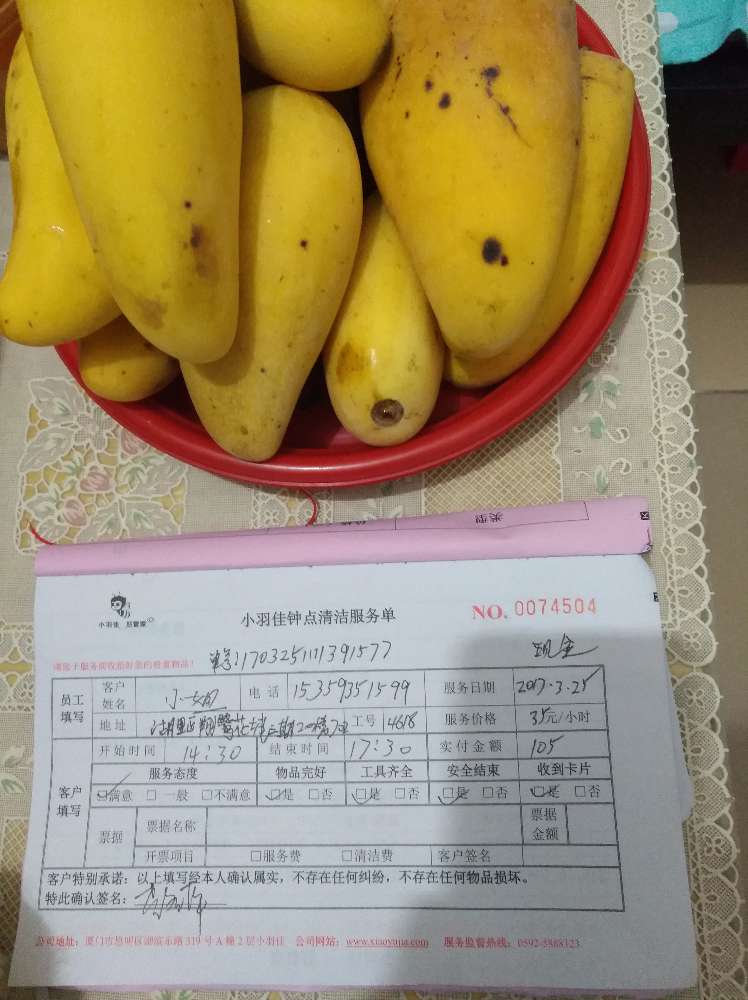 类型
小羽佳 居管家
小羽佳钟点清洁服务单
NO. 0074504
单号:1703251111391577
现金
请您于服务前收拾好您的贵重物品!
员工填写 客户姓名 电话 15359351599 服务日期 2017.3.25
地址 湖里区 工号 4618 服务价格 35元/小时
开始时间 14:30 结束时间 17:30 实付金额 105
客户填写 服务态度 物品完好 工具齐全 安全结束 收到卡片
☑满意 □一般 □不满意 ☑是 □否 ☑是 □否 ☑是 □否 ☑是 □否
票据 票据名称 票据金额
开票项目 □服务费 □清洁费 客户签名
客户特别承诺:以上填写经本人确认属实,不存在任何纠纷,不存在任何物品损坏。
特此确认签名:
公司地址:厦门市思明区湖滨东路319号A幢2层小羽佳 公司网站:www.xiaoyujia.com 服务监督热线:0592-5888123